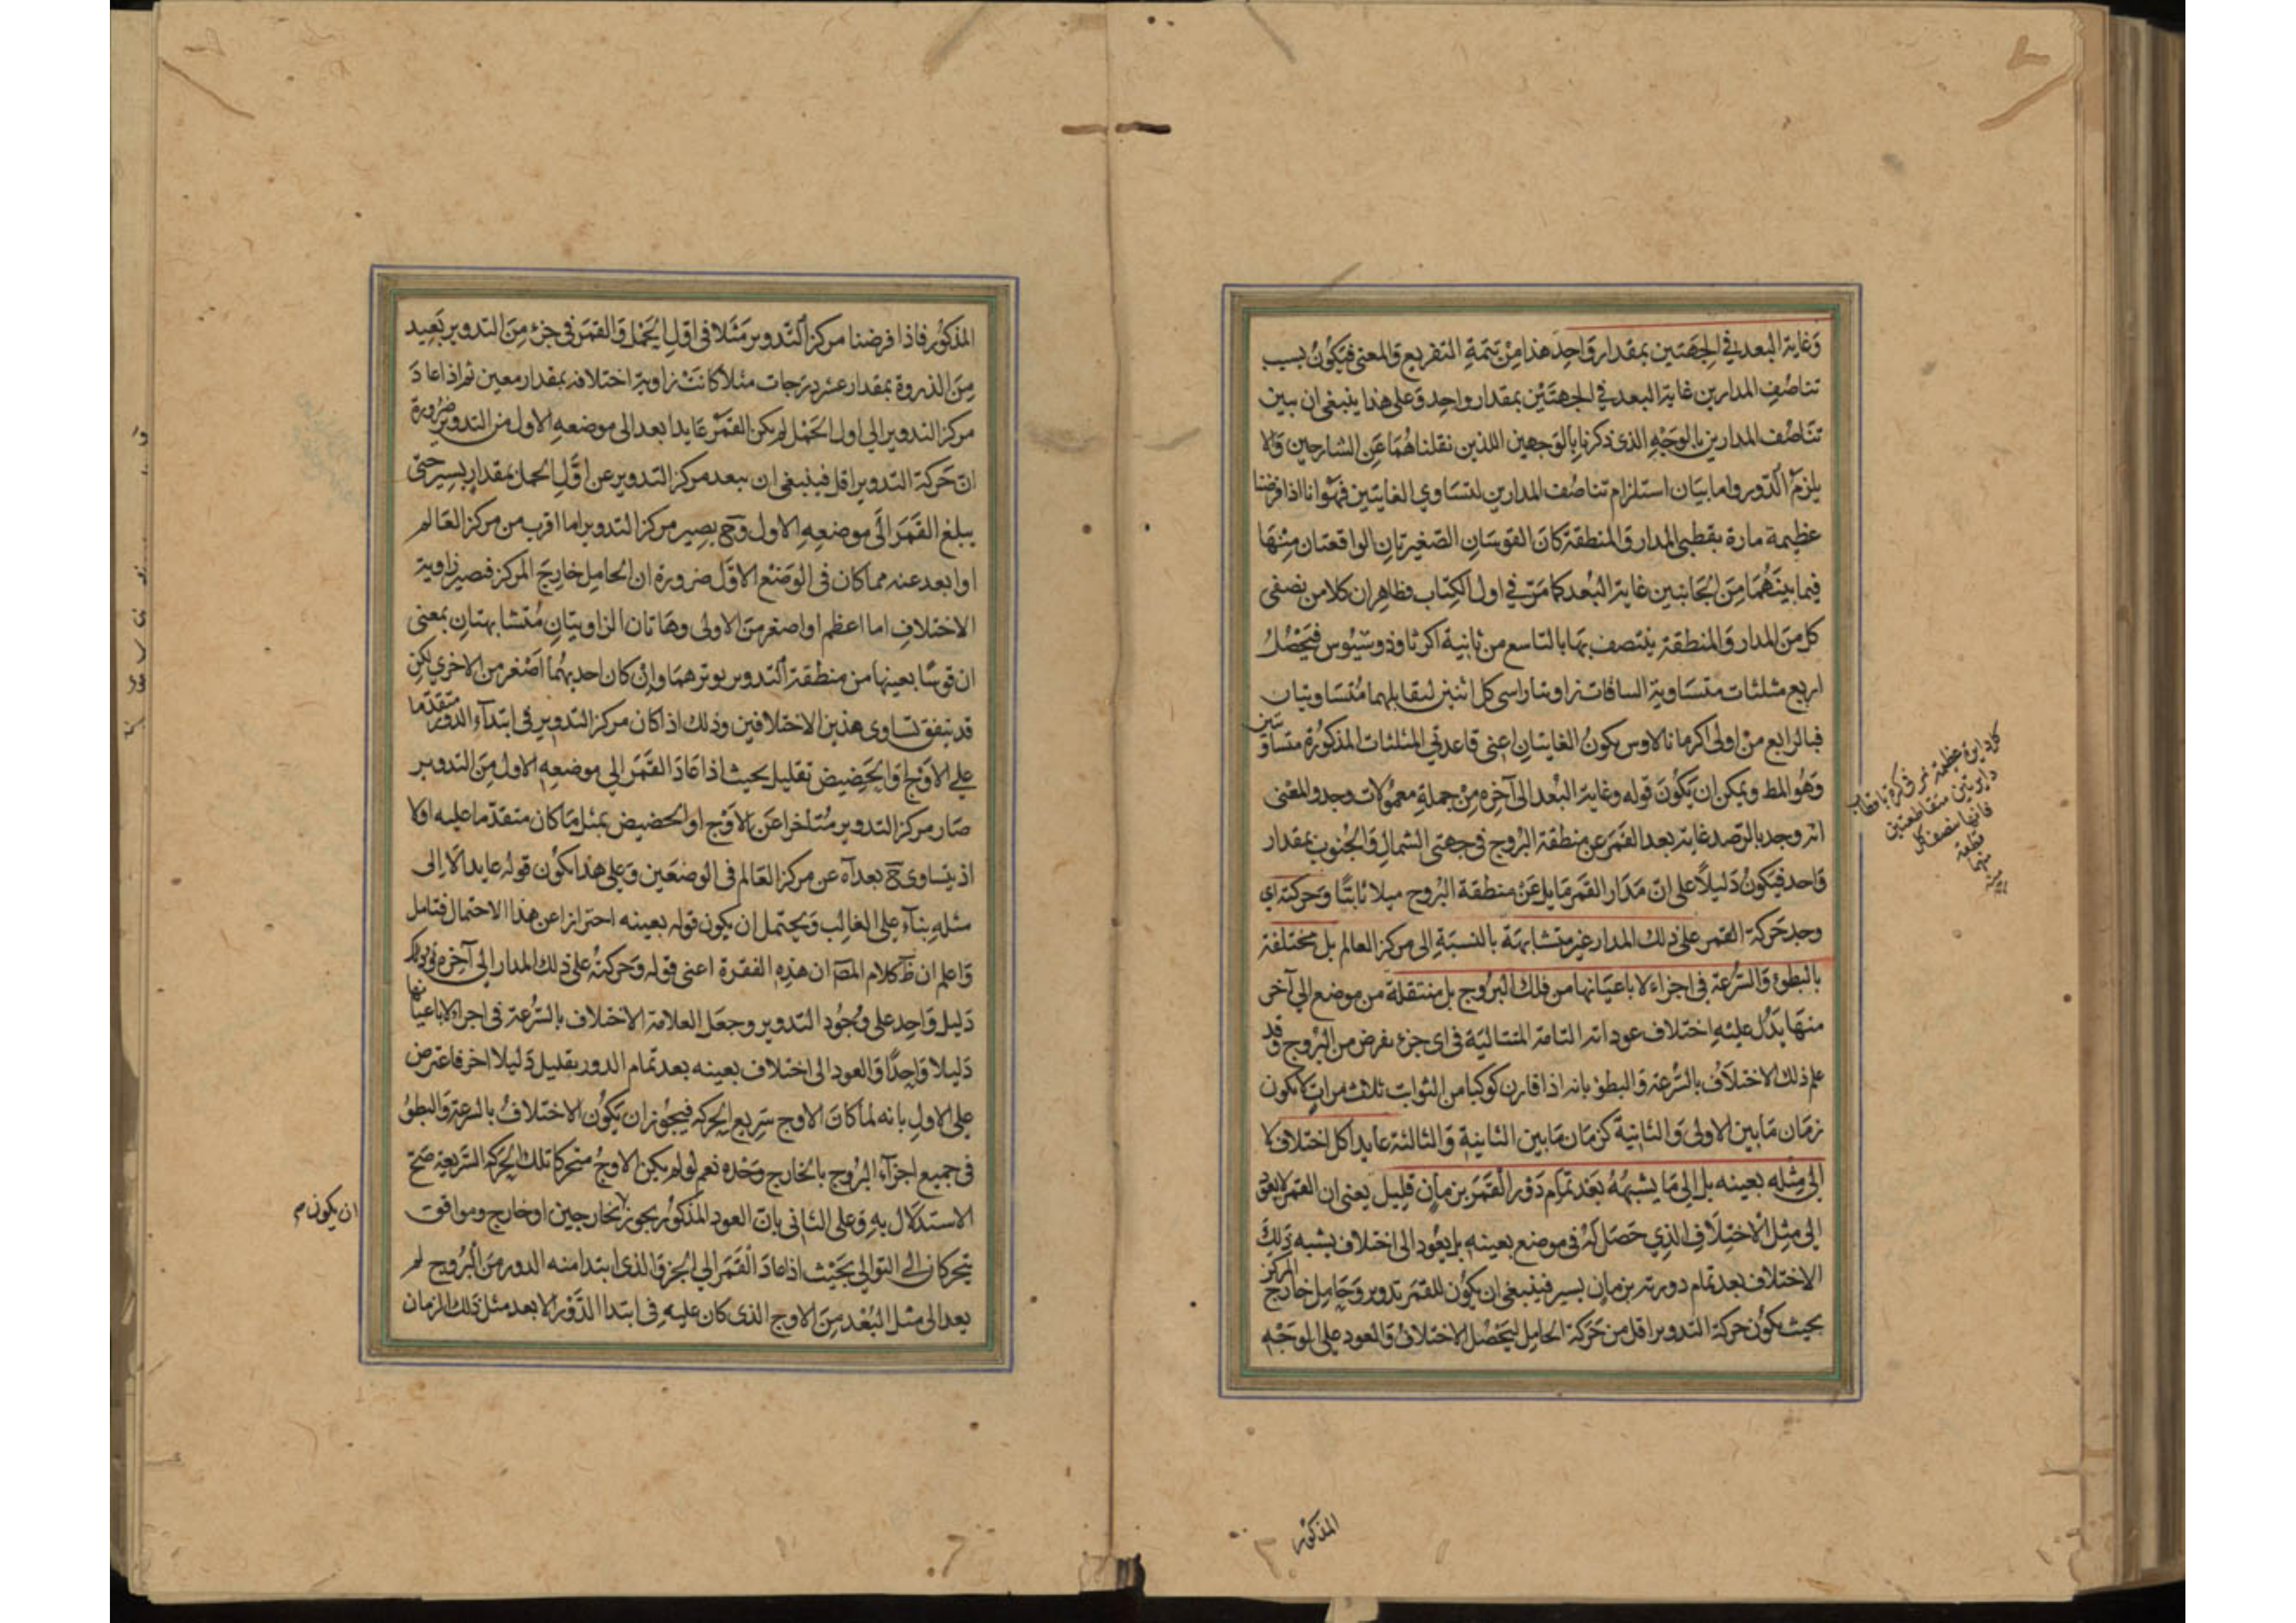 وَغاية البعد في الجهتين بمقدار وَاحد هذا مِنْ تتمةِ التفريع وَالمعنى فيكونُ بسبب
تناصُفِ المدارين غاية البعد في الجهتَيْن بمقدار واحدٍ وَعلى هذا ينبغى ان يبين
تنَاصُف المدارين بالوَجْهِ الذى ذكرنا بالوجهين اللذين نقلناهُمَا عَنِ الشارحين وَالا
يلزمُ الدّور واما بيَان استلزام تناصُف المدارين لتسَاوي الغايتين فهوَ انا اذا فرضنا
عظيمة مارة بقطبى المدار وَالمنطقة كانَ القوسَانِ الصّغيرتانِ الواقعتان مِنْهَا
فيما بينَهُمَا مِنَ الجَانبَين غاية البُعد كما مَرّ في اول الكِتاب فظاهر ان كلا من نصفى
كل منَ المدار وَالمنطقة ينتصف بها بالتاسع من ثانية اكر ثاوذوسيُوس فيَحْصُلُ
اربع مثلثات متسَاوية الساقات زاويتا راسى كل اثنين لتقابلهما مُتسَاويتان
فبالرابع مِنْ اولى اكر مانالاوس يكونُ الغايتَانِ اعنى قاعدتي المثلثات المذكورة متساويتين
وَهُوَ المط ويمكن ان يَكُونَ قوله وغاية البُعد الى آخِره مِنْ جملةِ معمُولات وجد وَالمعْنى
انه وجد بالرّصد غاية بعد القمَر عن منطقة البُروج فى جهتى الشمالِ وَالجنُوب بمقدار
وَاحد فيَكونُ دَليلاً على انّ مَدَار القمَر مَايل عَنْ منطقة البُروج ميلا ثابتًا وَحركته اي
وجد حَركة القمر على ذلك المدار غير متشابهة بالنسبَةِ الى مركز العالم بل مختلفة
بالبطوء وَالسّرعة فى اجزاء لا باعيَانها من فلك البُرُوج بل منتقلة من موضع الي آخر
منهَا يَدُلّ عليْهِ اختلاف عوداته التامة المتتاليَة فى اى جزء يفرض من البُرُوج وَقد
علم ذلك الاختلافُ بالسّرْعة وَالبطؤ بانه اذا قارن كوكبا من الثوابت ثلث مراتٍ لا يكون
زمَان مَا بين الاولى وَالثانية كزمان مَا بين الثانية وَالثالثة عايدا كل اختلاف لا
الى مِثله بعينه بل الي مَا يشبههُ بَعْد تمام دَوْر القَمَر بزمانٍ قليل يعنى ان القمر لا يعود
الى مثل الاختِلافِ الذِي حَصَل لهُ في موضع بعينهِ بل يعُود الى اختلاف يشبه ذلك
الاختلاف بعد تمام دورته بزمانٍ يسير فينبغى ان يكوُن للقمر تدوير وَحَامِل خارج المركز
بحيث يكوُن حركة التدوير اقل من حَرَكة الحَامِل ليَحْصُل الاختلافُ وَالعود على الوَجْهِ
كل دايرة عظيمة تمر فى كرة باقطاب
دايرتين متقاطعتين
فانها تنصف كل
قطعة
منهما
المذكور
المذكوُر فاذا فرضنا مركز التّدوير مَثَلا فى اوّلِ الحَمْل وَالقمَر فى جزء مِنَ التدوير بَعيد
مِنَ الذروة بمقدار عشر درَجات مثلاً كانَتْ زاوية اختلافه بمقدار معين ثم اذا عادَ
مركز التدوير الي اول الحَمْل لم يكن القَمرُ عَايدا بعد الى موضعهِ الاول من التدوير ضرورة
انّ حَركة التدوير اقل فينبغى ان يبعد مركز التدوير عن اوّل الحمل بمقدارٍ يسير حتى
يبلغ القَمَر الَى موضعِهِ الاول وَح يصِير مركز التدوير اما اقرب من مركز العَالم
او ابعد عنه مما كان فى الوَضْع الاوّل ضرورة ان الحامِل خارج المركز فيصير زاوية
الاختلافِ اما اعظم او اصغر مِنَ الاولى وهَاتان الزاويتانِ مُتشابهتانِ بمعنى
ان قوسًا بعينها من منطقة التدوير يوترهمَا وَانْ كان احديهُما اَصْغر من الاخرى لكِن
قد يتفق تساوى هذين الاختلافين وذلك اذا كان مركز التدوير فى ابتدآء الدور متقدّما
على الاَوْج اوَ الحَضِيض بقليل بحيث اذا عَادَ القَمَر الي موضعِهِ الاول مِنَ التدوير
صَار مركز التدوير مُتاخرا عَن الاَوْج او الحضيض بمثل مَا كان متقدّما عليه اولا
اذ يتساوى ح بعدآه عن مركز العَالم فى الوضعَين وَعلى هذا يكُون قوله عايدا لا الى
مثله بنآءً على الغالب وَيحتمل ان يكون قوله بعينه احترازا عن هذا الاحتمال فتامل
وَاعلم ان ظَ كلام المص ان هذه الفقرة اعنى قوله وَحركتهُ على ذلك المدار الى آخره
دَليل وَاحِد على وُجُود التدوير وجعَل العلامة الاختلاف بالسّرعة فى اجزاء لا باعيانها
دَليلا وَاحِدًا وَالعود الى اختلاف بعينه بعد تمَام الدور بقليل دَليلا اخر فاعترض
على الاولِ بانه لما كانَ الاوج سَرِيع الحركه فيجُوز ان يَكُون الاختلافُ بالسرعَة وَالبطؤ
فى جميع اجزآء البُرُوج بالخارج وَحْده نعم لو لم يكن الاوجُ متحركا تلك الحركة السّريعة صَحّ
الاستدلال به وَعلى الثانى بانّ العود المذكوُر يجوز لخارجين او خارج وموافق
يتحركان الى التوالي بحَيْث اذا عَادَ القَمَر الي الجزؤ الذى ابتدا منه الدور مِنَ البُرُوج لم
يعد الى مثل البُعْد مِنَ الاوج الذى كان عليهِ فى ابتدا الدّوْر الا بعد مثل ذلك الزمان
ان يكون م